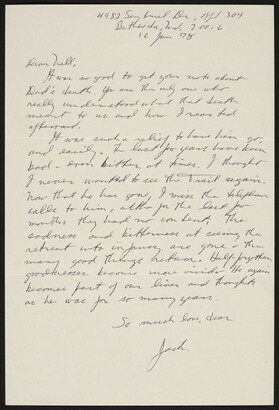 4982 Sentinel Dr., Apt 304
Bethesda, Md. 20016
16 Jan 78
Dear Nell,
It was so good to get your note about
Dad's death. You are the only one who
really understood what that death
meant to us and how I reacted
afterward.
It was such a relief to have him go,
and easily. The last few years have been
bad - even bitter at times. I thought
I never wanted to see the Trail again.
Now that he has gone, I miss the telephone
calls to him, altho for the last few
months they had no content. The
sadness and bitterness at seeing the
retreat into infancy are gone & the
many good things return. Half forgotten
goodnesses become more vivid. He again
becomes part of our lives and thoughts
as he was for so many years.
So much love, dear
Jack